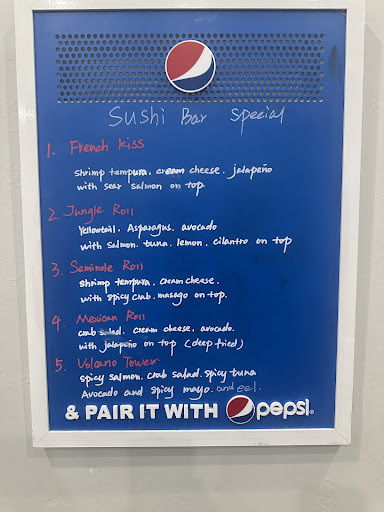 Sushi Bar Special
1. French Kiss
shrimp tempura. cream cheese. jalapeño
with sear salmon on top
2. Jungle Roll
Yellowtail. Asparagus. avocado
with salmon. tuna. lemon. cilantro on top
3. Seminole Roll
shrimp tempura. cream cheese.
with spicy crab. masago on top.
4. Mexican Roll
crab salad. cream cheese. avocado.
with jalapeño on top (deep fried)
5. Volcano Tower
spicy salmon. crab salad. spicy tuna
Avocado and spicy mayo. and eel.
& PAIR IT WITH pepsi